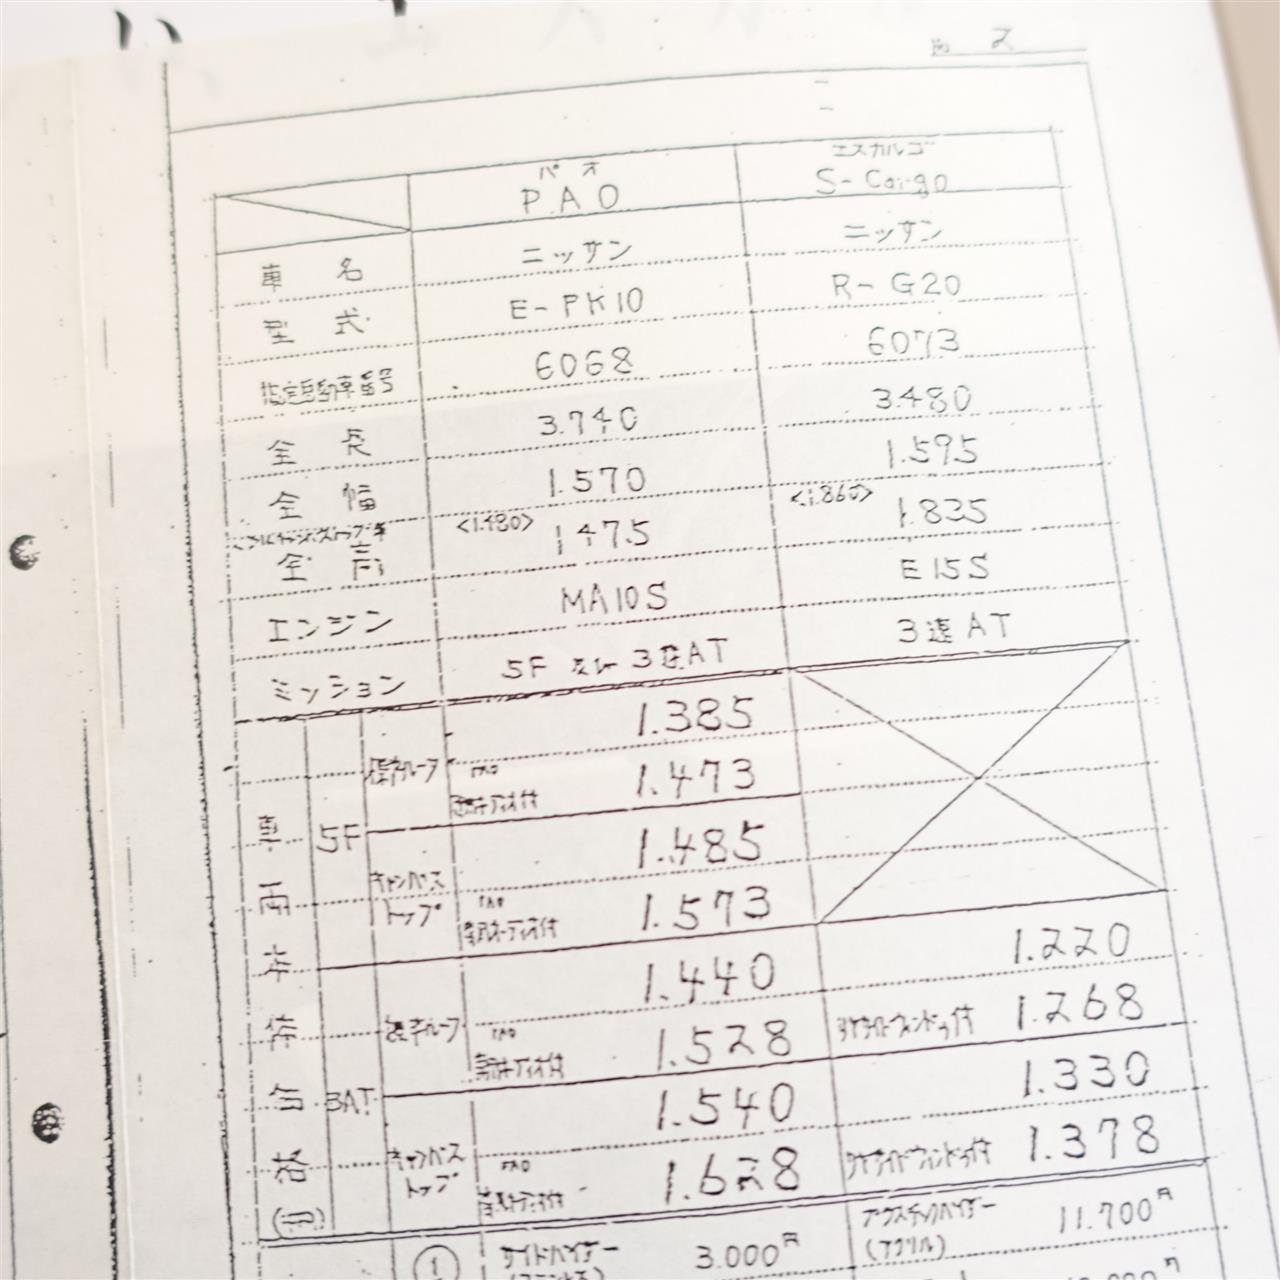 パオ
PAO
エスカルゴ
S-Cargo
車名 ニッサン ニッサン
型式 E-PK10 R-G20
指定自動車番号 6068 6073
全長 3.740 3.480
全幅 1.570 1.595
<1.480> <1.860>
全高 1475 1.835
エンジン MA10S E15S
ミッション 5F 3速AT 3速AT
車両本体
5F
標準ルーフ 1.385
PAO
専用オーディオ付 1.473
キャンバストップ 1.485
PAO
専用オーディオ付 1.573
3AT
標準ルーフ 1.440 1.220
PAO
専用オーディオ付 1.528 サイドウィンドゥ付 1.268
キャンバストップ 1.540 1.330
PAO
専用オーディオ付 1.628 サイドウィンドゥ付 1.378
① サイドバイザー 3.000円 11.700円
(アクリル)